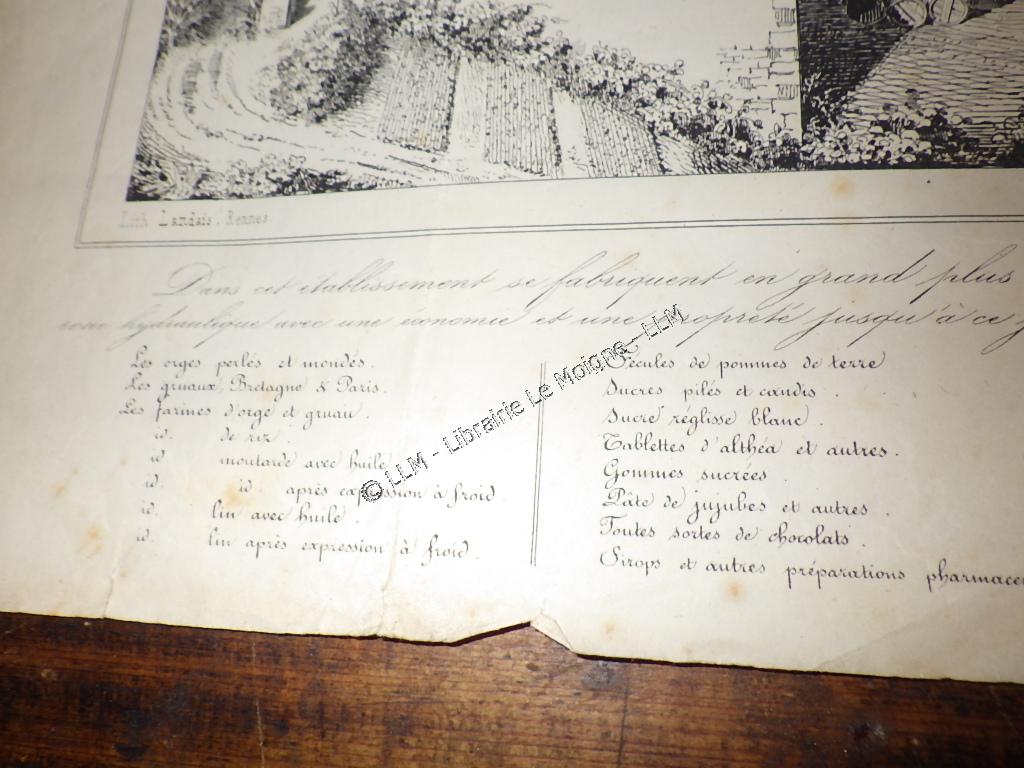 Lith. Landais, Rennes.
Dans cet établissement se fabriquent en grand plus
roue hydraulique avec une économie et une propreté jusqu'à ce
Les orges perlés et mondés.
Les gruaux, Bretagne & Paris.
Les farines d'orge et gruau.
id. de riz.
id. moutarde avec huile
id. id. après expression à froid.
id. lin avec huile.
id. lin après expression à froid.
Fécules de pommes de terre
Sucres pilés et candis.
Sucre réglisse blanc.
Tablettes d'althéa et autres.
Gommes sucrées.
Pâte de jujubes et autres.
Toutes sortes de chocolats.
Sirops et autres préparations pharmaceu
© LLM - Librairie Le Moigne - LLM